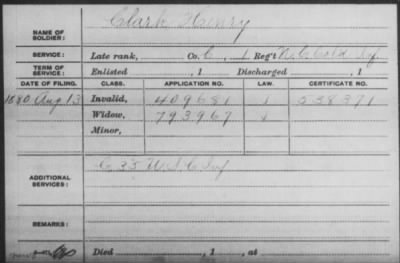 NAME OF SOLDIER: Clark Henry
SERVICE: Late rank, Co. C, 1 Reg't N.C. Cold Inf.
TERM OF SERVICE: Enlisted , 1 Discharged , 1
DATE OF FILING. CLASS. APPLICATION NO. LAW. CERTIFICATE NO.
1880 Aug 13 Invalid, 409681 1 538371
Widow, 793967
Minor,
ADDITIONAL SERVICES: C 35 U.S.C. Inf
REMARKS:
Died , 1 , at